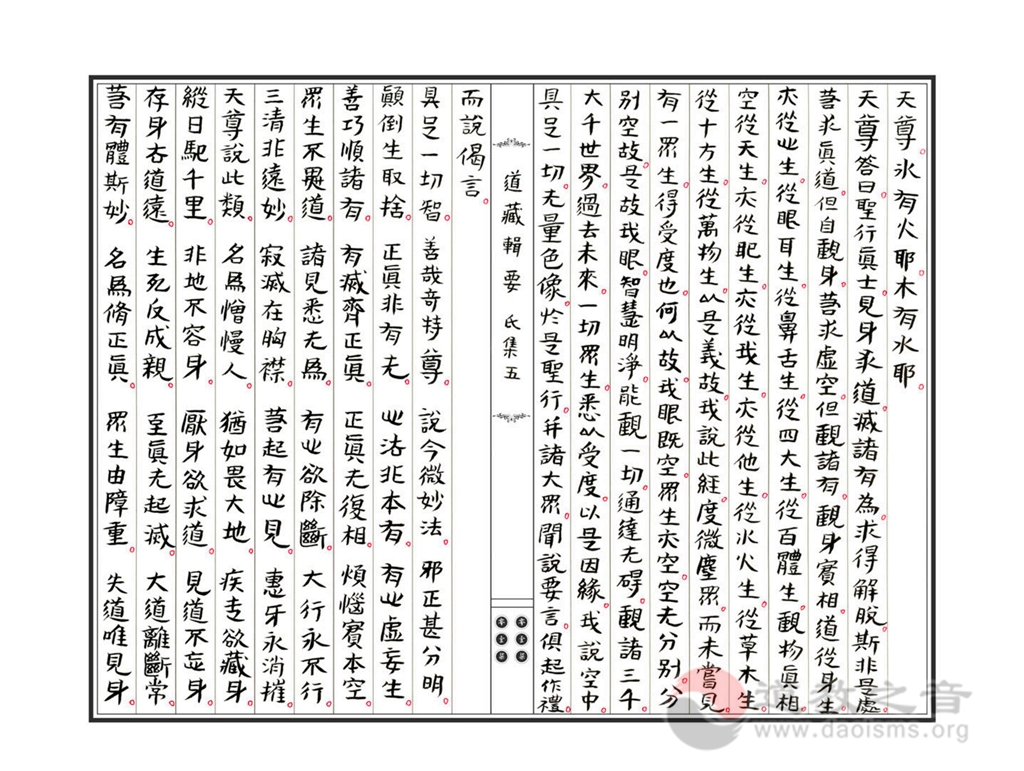 天尊氷有火耶。木有水耶。
天尊答曰。聖行眞士。見身求道。滅諸有為。求得解脫。斯非是處。
若求眞道。但自觀身。若求虛空。但觀諸有。觀身實相。道從身生。
亦從心生。從眼耳生。從鼻舌生。從四大生。從百體生。觀物眞相。
空從天生。亦從地生。亦從我生。亦從他生。從氷火生。從草木生。
從十方生。從萬物生。以是義故。我說此經。度微塵眾。而未嘗見
有一眾生。得受度也。何以故。我眼既空。眾生亦空。空无分別。分
別空故。是故我眼。智慧明淨。能觀一切。通達无碍。觀諸三千
大千世界。過去未來。一切眾生。悉以受度。以是因緣。我說空中。
具足一切。无量色像。於是聖行。并諸大眾。聞說要言。俱起作禮。
道藏輯要 氐集五
而說偈言。
具足一切智。 善哉奇特尊 說今微妙法。 邪正甚分明。
顛倒生取捨 正眞非有无。 心法非本有。 有心虛妄生
善巧順諸有。 有滅齊正眞。 正眞无復相。 煩惱實本空
眾生不見道。 諸見悉无為。 有心欲除斷。 大行永不行
三清非遠妙。 寂滅在胸襟。 若起有心見。 惠牙永消摧
天尊說此類。 名為憎慢人 猶如畏大地 疾走欲藏身
縱日馳千里。 非地不容身。 厭身欲求道。 見道不忘身
存身去道遠。 生死反成親。 至眞无起滅。 大道離斷常
若有體斯妙。 名為脩正眞。 眾生由障重。 失道唯見身
道教之音
www.daoisms.org